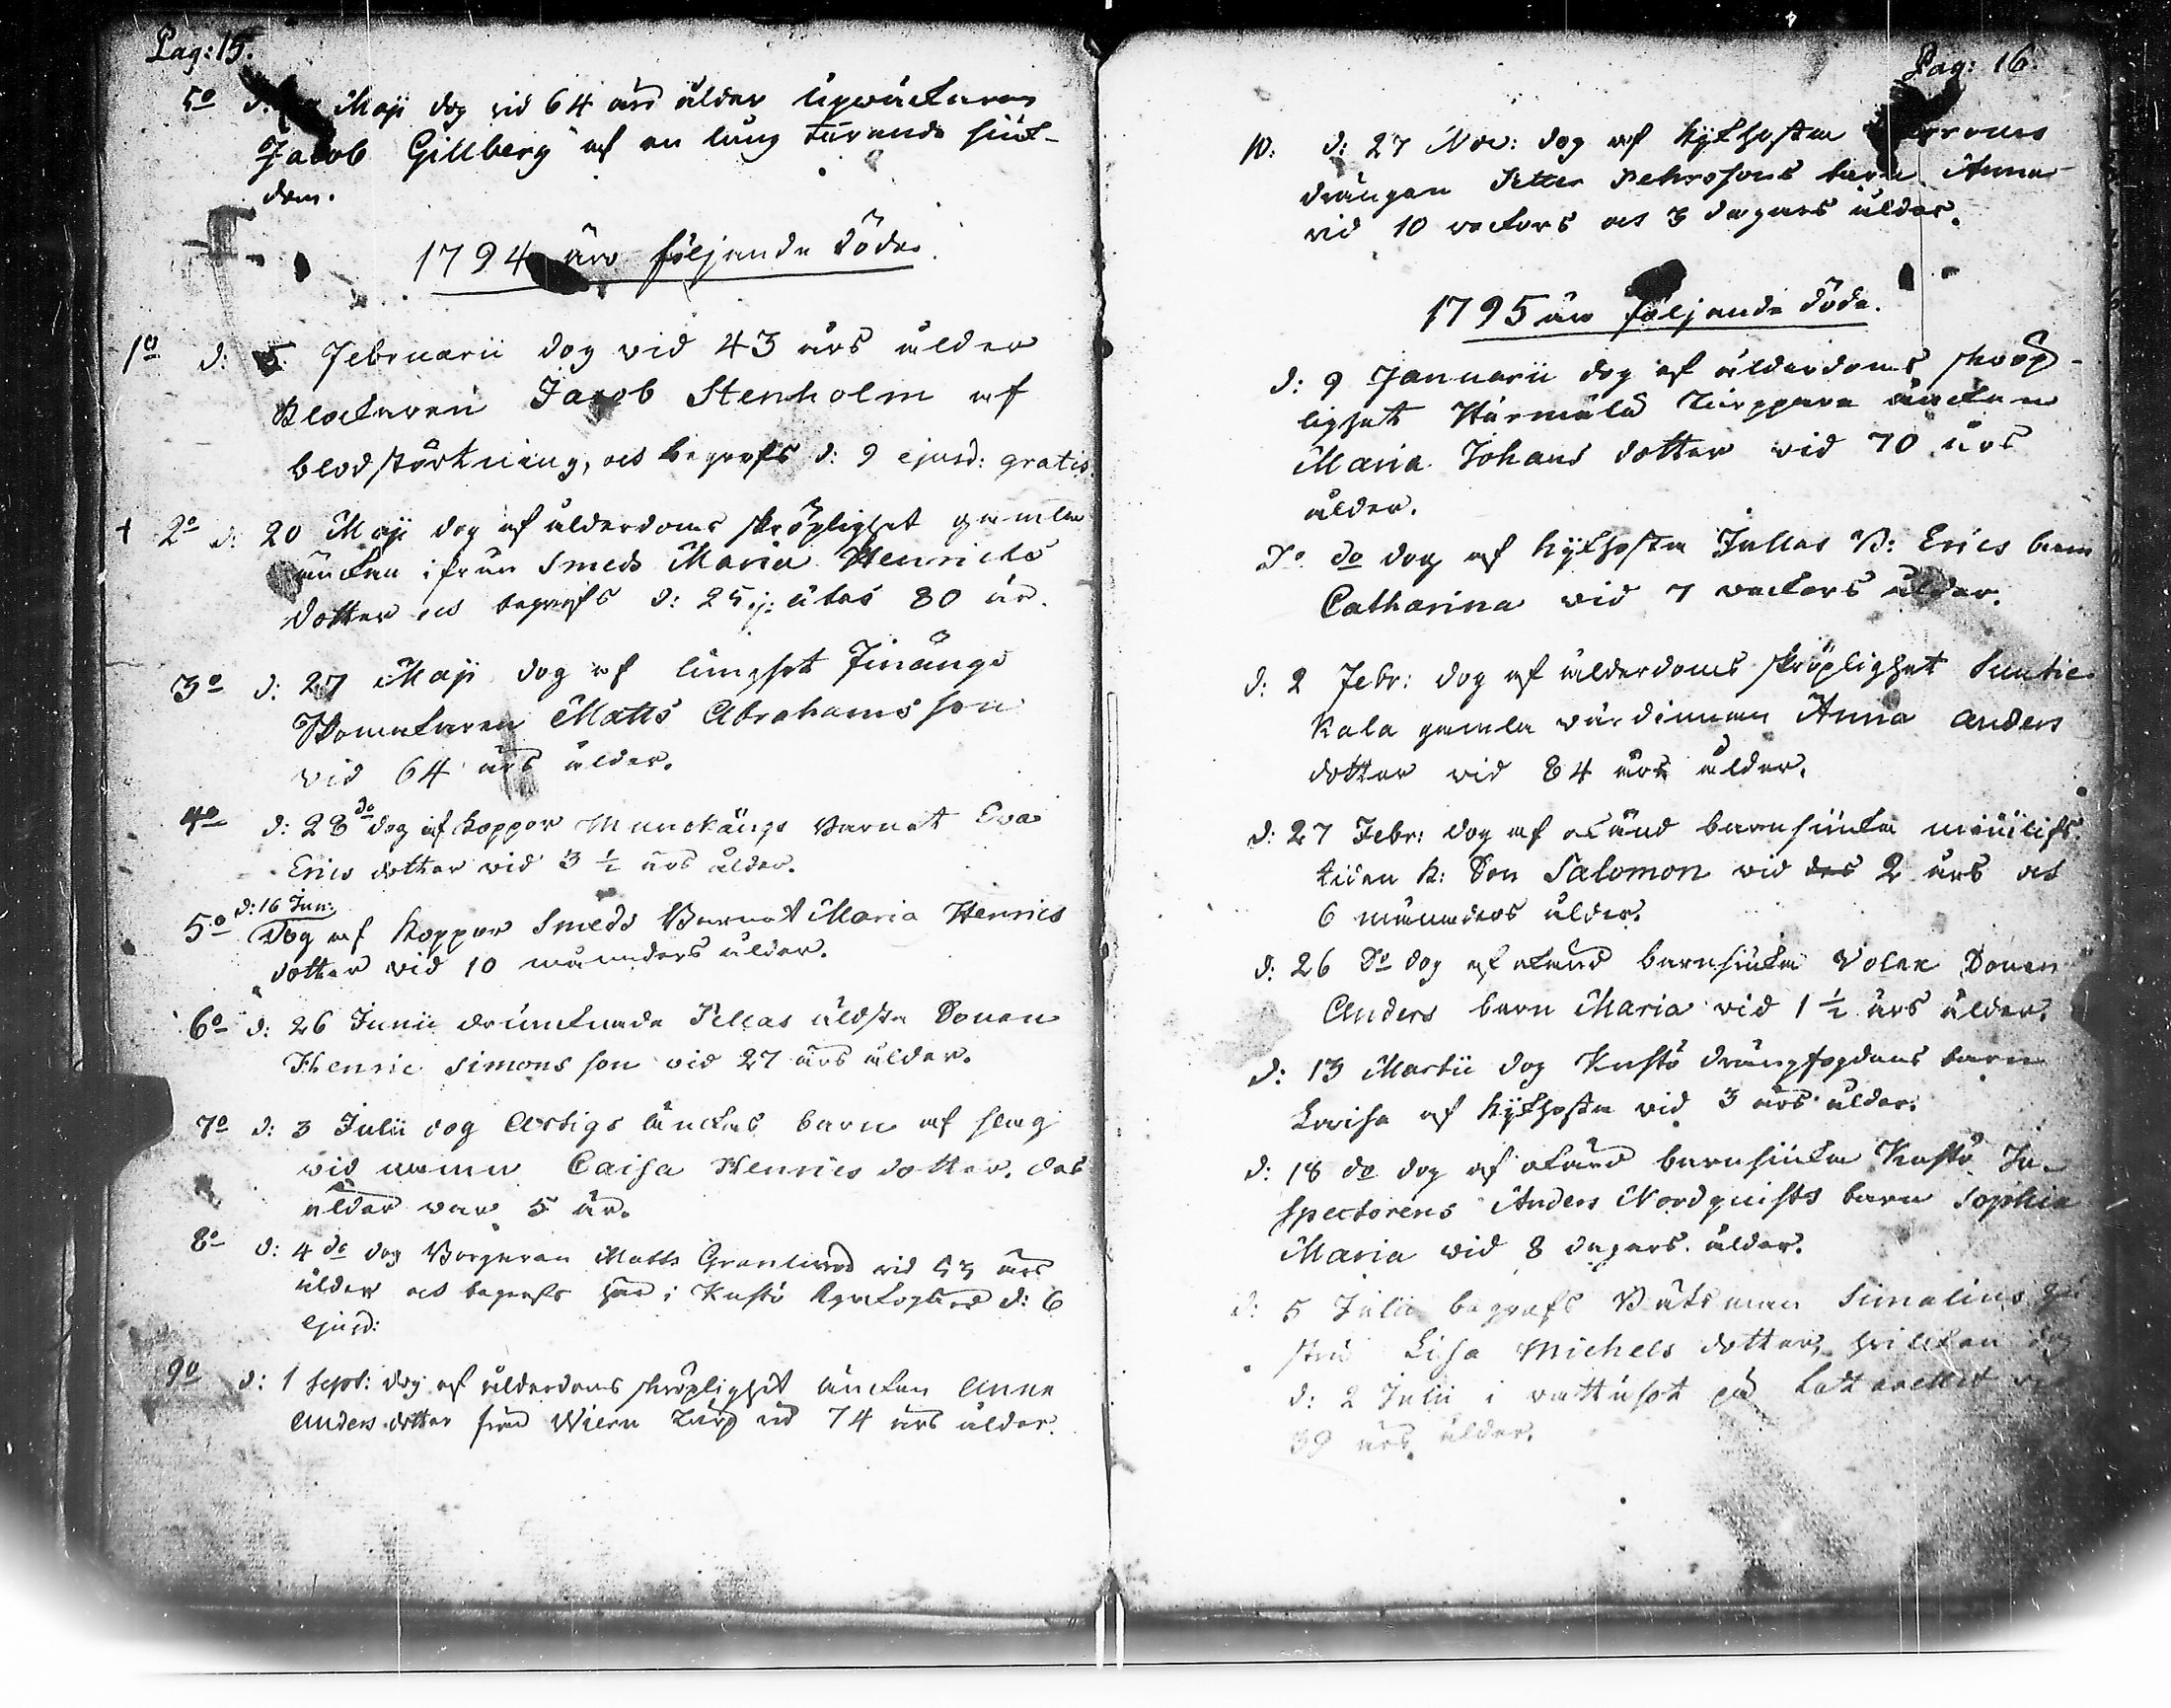 Pag: 15.
5o d: Maji dog vid 64 års ålder Upwacktaren
Jacob Gillberg af en lång tärande siuk-
dom.
1794 äro följande döde.
1o d: 5 Februarii dog vid 43 års ålder
Klockaren Jacob Stenholm af
blodstörtning, och begrofs d: 9 ejusd: gratis.
+ 2o d: 20 Maji dog af ålderdoms skröplighet gamla
änckan ifrån Smeds Maria Henrics
dotter och begrofs d: 25 j: ätas 80 år.
3o d: 27 Maji dog af lungsot Finängs
Skomakaren Matts Abrahamsson
vid 64 års ålder.
4o d: 28 do dog af koppor Munckängs Barnet Eva
Erics dotter vid 3 1/2 års ålder.
d: 16 Jun:
5o Dog af koppor Smeds Barnet Maria Henrics
dotter vid 10 månaders ålder.
6o d: 26 Junii drunknade Pellas äldsta Sonen
Henric Simonsson vid 27 års ålder.
7o d: 3 Julii dog Artigs änckas barn af slag
vid namn Caisa Henrics dotter. des
ålder war 5 år.
8o d: 4 do dog Borgaren Matts Granlund vid 53 års
ålder och begrofs här i Kustö Kyrkogård d: 6
ejusd:
9o d: 1 Sept: dog af ålderdoms skröplighet änckan Anna
Anders dotter från Wiern Torp vid 74 års ålder.
Pag: 16.
10: d: 27 Nov: dog af kikhosta
drängen Petter Pehrssons barn Anna
vid 10 veckors och 3 dagars ålder.
1795 äro följande döde.
d: 9 Januarii dog af ålderdoms skröp-
lighet Torppare änckan
Maria Johans dotter vid 70 års
ålder.
Do do dog af kikhosta Jullas B: Erics barn
Catharina vid 7 veckors ålder.
d: 2 Febr: dog af ålderdoms skröplighet
Kala gamla värdinnan Anna Anders
dotter vid 84 års ålder.
d: 27 Febr: dog af okänd barnsiuka
K: Son Salomon vid des 2 års och
6 månaders ålder.
d: 26 do dog af okänd barnsiuka Sonen
Anders barn Maria vid 1 1/2 års ålder.
d: 13 Martii dog Kustö drängfogdens barn
Lovisa af kikhosta vid 3 års ålder.
d: 18 do dog af okänd barnsiuka Kustö In-
spectorens Anders Nordquists barn Sophia
Maria vid 8 dagars ålder.
d: 5 Julii begrofs Båtsman Simelius hu
stru Lisa Michels dotter, hvilken dog
d: 2 Julii i vattusot på Lattarettet
39 års ålder.